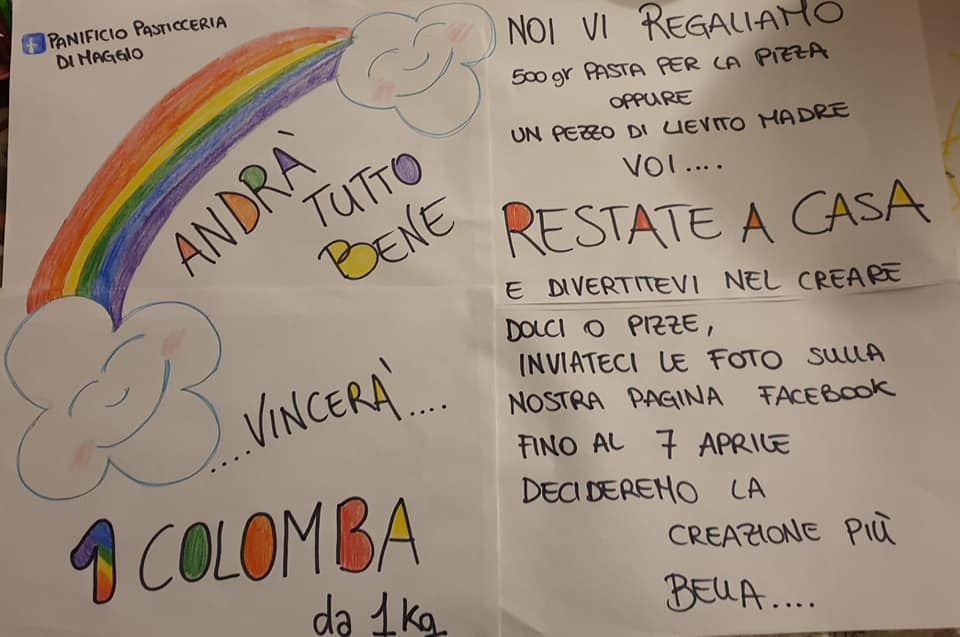 PANIFICIO PASTICCERIA
DI MAGGIO
ANDRÀ
TUTTO
BENE
NOI VI REGALIAMO
500gr PASTA PER LA PIZZA
OPPURE
UN PEZZO DI LIEVITO MADRE
VOI....
RESTATE A CASA
E DIVERTITEVI NEL CREARE
DOLCI O PIZZE,
INVIATECI LE FOTO SULLA
NOSTRA PAGINA FACEBOOK
FINO AL 7 APRILE
DECIDEREMO LA
CREAZIONE PIÙ
BELLA....
....VINCERÀ....
1 COLOMBA
da 1Kg